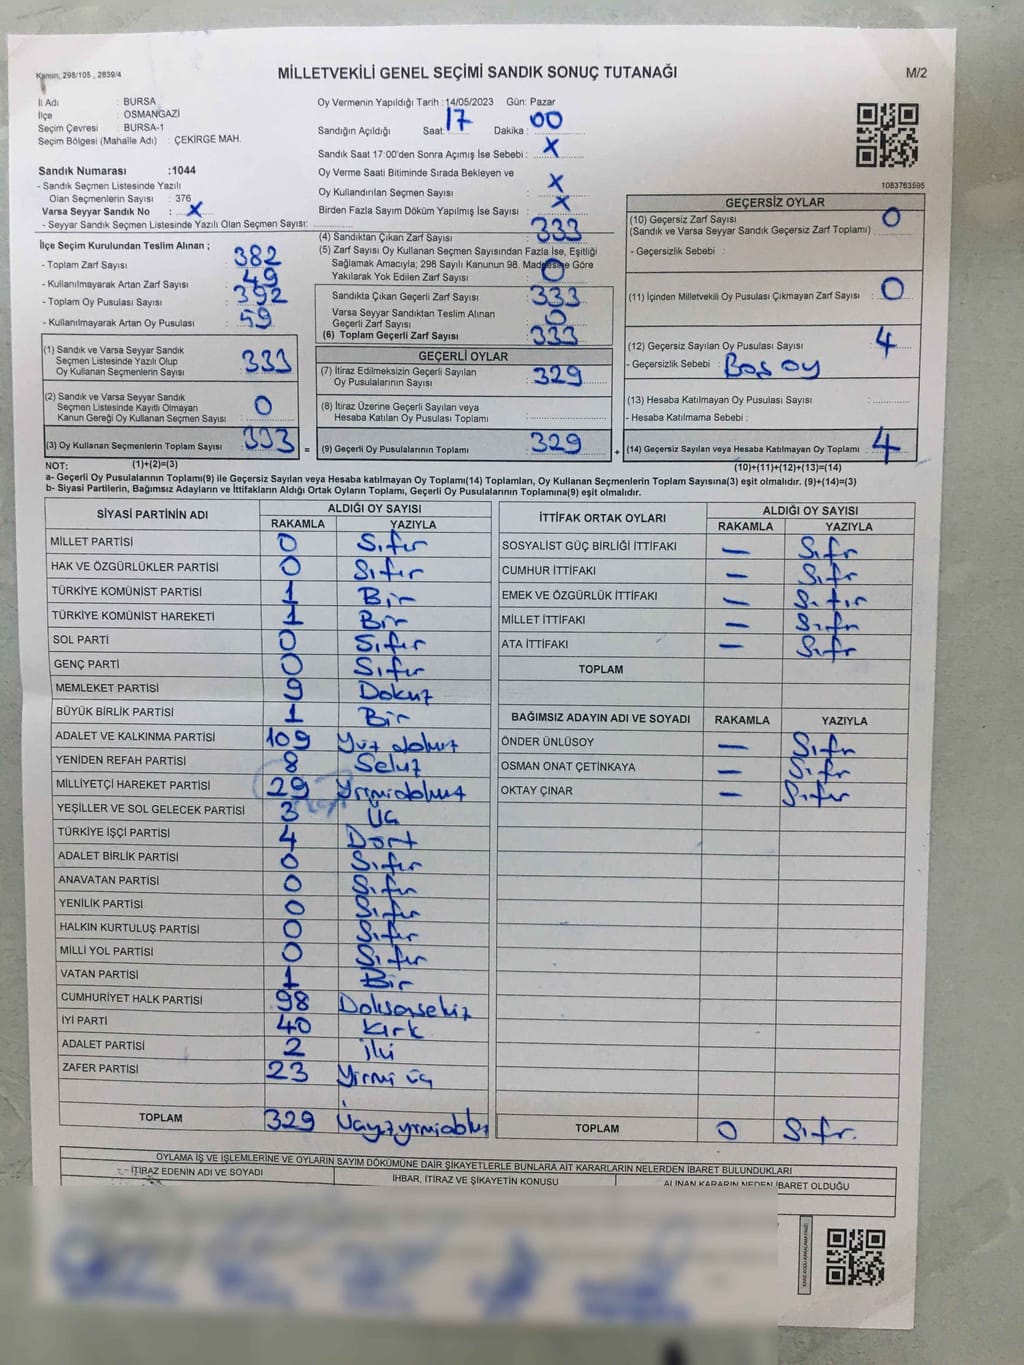 Kanun; 298/105 , 2839/4
MİLLETVEKİLİ GENEL SEÇİMİ SANDIK SONUÇ TUTANAĞI
M/2
İl Adı : BURSA
İlçe : OSMANGAZİ
Seçim Çevresi : BURSA-1
Seçim Bölgesi (Mahalle Adı) : ÇEKİRGE MAH.
Sandık Numarası :1044
- Sandık Seçmen Listesinde Yazılı
Olan Seçmenlerin Sayısı : 376
Varsa Seyyar Sandık No : X
- Seyyar Sandık Seçmen Listesinde Yazılı Olan Seçmen Sayısı:
Oy Vermenin Yapıldığı Tarih :14/05/2023 Gün: Pazar
Sandığın Açıldığı Saat: 17 Dakika : 00
Sandık Saat 17:00'den Sonra Açımış İse Sebebi : X
Oy Verme Saati Bitiminde Sırada Bekleyen ve
Oy Kullandırılan Seçmen Sayısı : X
Birden Fazla Sayım Döküm Yapılmış İse Sayısı : X
1083763595
İlçe Seçim Kurulundan Teslim Alınan ;
- Toplam Zarf Sayısı : 382
- Kullanılmayarak Artan Zarf Sayısı : 49
- Toplam Oy Pusulası Sayısı : 392
- Kullanılmayarak Artan Oy Pusulası : 59
(1) Sandık ve Varsa Seyyar Sandık
Seçmen Listesinde Yazılı Olup
Oy Kullanan Seçmenlerin Sayısı : 333
(2) Sandık ve Varsa Seyyar Sandık
Seçmen Listesinde Kayıtlı Olmayan
Kanun Gereği Oy Kullanan Seçmen Sayısı : 0
(3) Oy Kullanan Seçmenlerin Toplam Sayısı : 333
(4) Sandıktan Çıkan Zarf Sayısı : 333
(5) Zarf Sayısı Oy Kullanan Seçmen Sayısından Fazla İse, Eşitliği
Sağlamak Amacıyla; 298 Sayılı Kanunun 98. Maddesine Göre
Yakılarak Yok Edilen Zarf Sayısı : 0
Sandıkta Çıkan Geçerli Zarf Sayısı : 333
Varsa Seyyar Sandıktan Teslim Alınan
Geçerli Zarf Sayısı : 0
(6) Toplam Geçerli Zarf Sayısı : 333
GEÇERLİ OYLAR
(7) İtiraz Edilmeksizin Geçerli Sayılan
Oy Pusulalarının Sayısı : 329
(8) İtiraz Üzerine Geçerli Sayılan veya
Hesaba Katılan Oy Pusulası Toplamı :
= (9) Geçerli Oy Pusulalarının Toplamı : 329
GEÇERSİZ OYLAR
(10) Geçersiz Zarf Sayısı : 0
(Sandık ve Varsa Seyyar Sandık Geçersiz Zarf Toplamı)
- Geçersizlik Sebebi :
(11) İçinden Milletvekili Oy Pusulası Çıkmayan Zarf Sayısı : 0
(12) Geçersiz Sayılan Oy Pusulası Sayısı : 4
- Geçersizlik Sebebi : Boş oy
(13) Hesaba Katılmayan Oy Pusulası Sayısı :
- Hesaba Katılmama Sebebi :
+ (14) Geçersiz Sayılan veya Hesaba Katılmayan Oy Toplamı : 4
NOT: (1)+(2)=(3)
(10)+(11)+(12)+(13)=(14)
a- Geçerli Oy Pusulalarının Toplamı(9) ile Geçersiz Sayılan veya Hesaba katılmayan Oy Toplamı(14) Toplamları, Oy Kullanan Seçmenlerin Toplam Sayısına(3) eşit olmalıdır. (9)+(14)=(3)
b- Siyasi Partilerin, Bağımsız Adayların ve İttifakların Aldığı Ortak Oyların Toplamı, Geçerli Oy Pusulalarının Toplamına(9) eşit olmalıdır.
SİYASİ PARTİNİN ADI ALDIĞI OY SAYISI
RAKAMLA YAZIYLA
MİLLET PARTİSİ 0 Sıfır
HAK VE ÖZGÜRLÜKLER PARTİSİ 0 Sıfır
TÜRKİYE KOMÜNİST PARTİSİ 1 Bir
TÜRKİYE KOMÜNİST HAREKETİ 1 Bir
SOL PARTİ 0 Sıfır
GENÇ PARTİ 0 Sıfır
MEMLEKET PARTİSİ 9 Dokuz
BÜYÜK BİRLİK PARTİSİ 1 Bir
ADALET VE KALKINMA PARTİSİ 109 Yüz dokuz
YENİDEN REFAH PARTİSİ 8 Sekiz
MİLLİYETÇİ HAREKET PARTİSİ 29 Yirmidokuz
YEŞİLLER VE SOL GELECEK PARTİSİ 3 Üç
TÜRKİYE İŞÇİ PARTİSİ 4 Dört
ADALET BİRLİK PARTİSİ 0 Sıfır
ANAVATAN PARTİSİ 0 Sıfır
YENİLİK PARTİSİ 0 Sıfır
HALKIN KURTULUŞ PARTİSİ 0 Sıfır
MİLLİ YOL PARTİSİ 0 Sıfır
VATAN PARTİSİ 1 Bir
CUMHURİYET HALK PARTİSİ 98 Doksansekiz
İYİ PARTİ 40 Kırk
ADALET PARTİSİ 2 İki
ZAFER PARTİSİ 23 Yirmi üç
TOPLAM 329 Üçyüzyirmidokuz
İTTİFAK ORTAK OYLARI ALDIĞI OY SAYISI
RAKAMLA YAZIYLA
SOSYALİST GÜÇ BİRLİĞİ İTTİFAKI — Sıfır
CUMHUR İTTİFAKI — Sıfır
EMEK VE ÖZGÜRLÜK İTTİFAKI — Sıfır
MİLLET İTTİFAKI — Sıfır
ATA İTTİFAKI — Sıfır
TOPLAM
BAĞIMSIZ ADAYIN ADI VE SOYADI RAKAMLA YAZIYLA
ÖNDER ÜNLÜSOY — Sıfır
OSMAN ONAT ÇETİNKAYA — Sıfır
OKTAY ÇINAR — Sıfır
TOPLAM 0 Sıfır.
OYLAMA İŞ VE İŞLEMLERİNE VE OYLARIN SAYIM DÖKÜMÜNE DAİR ŞİKAYETLERLE BUNLARA AİT KARARLARIN NELERDEN İBARET BULUNDUKLARI
İTİRAZ EDENİN ADI VE SOYADI İHBAR, İTİRAZ VE ŞİKAYETİN KONUSU ALINAN KARARIN NEDEN İBARET OLDUĞU